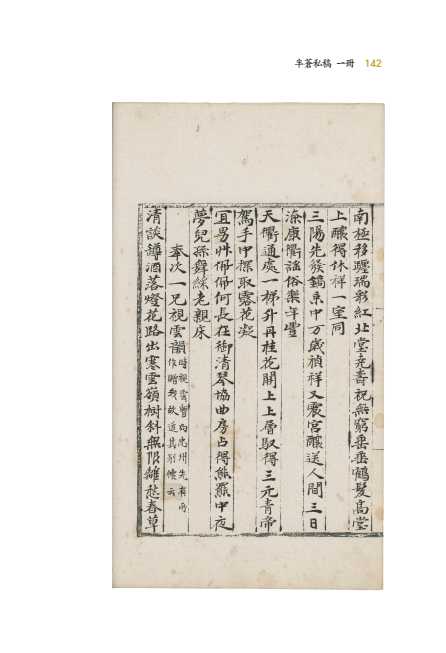 半蒼私稿 一冊 142
南極移躔瑞彩紅北堂先壽祝無窮垂垂鶴髮高堂
上釀得休祥一室同
三陽先候鎬京中万歲禎祥又震宮釀送人間三日
添康衢謠俗樂年豐
天衢通處一梯升丹桂花開上上層馭得三元青帝
駕手中探取露花凝
宜男艸佩佩何長在御清琴協曲房占得熊羆中夜
夢兒孫舞綵老親床
奉次一兄視雲韻 時視雲曾向忠州先有雨
作贈我故道其別懷云
清談罇酒落燈花路出寒雲嶺樹斜無限離愁春草